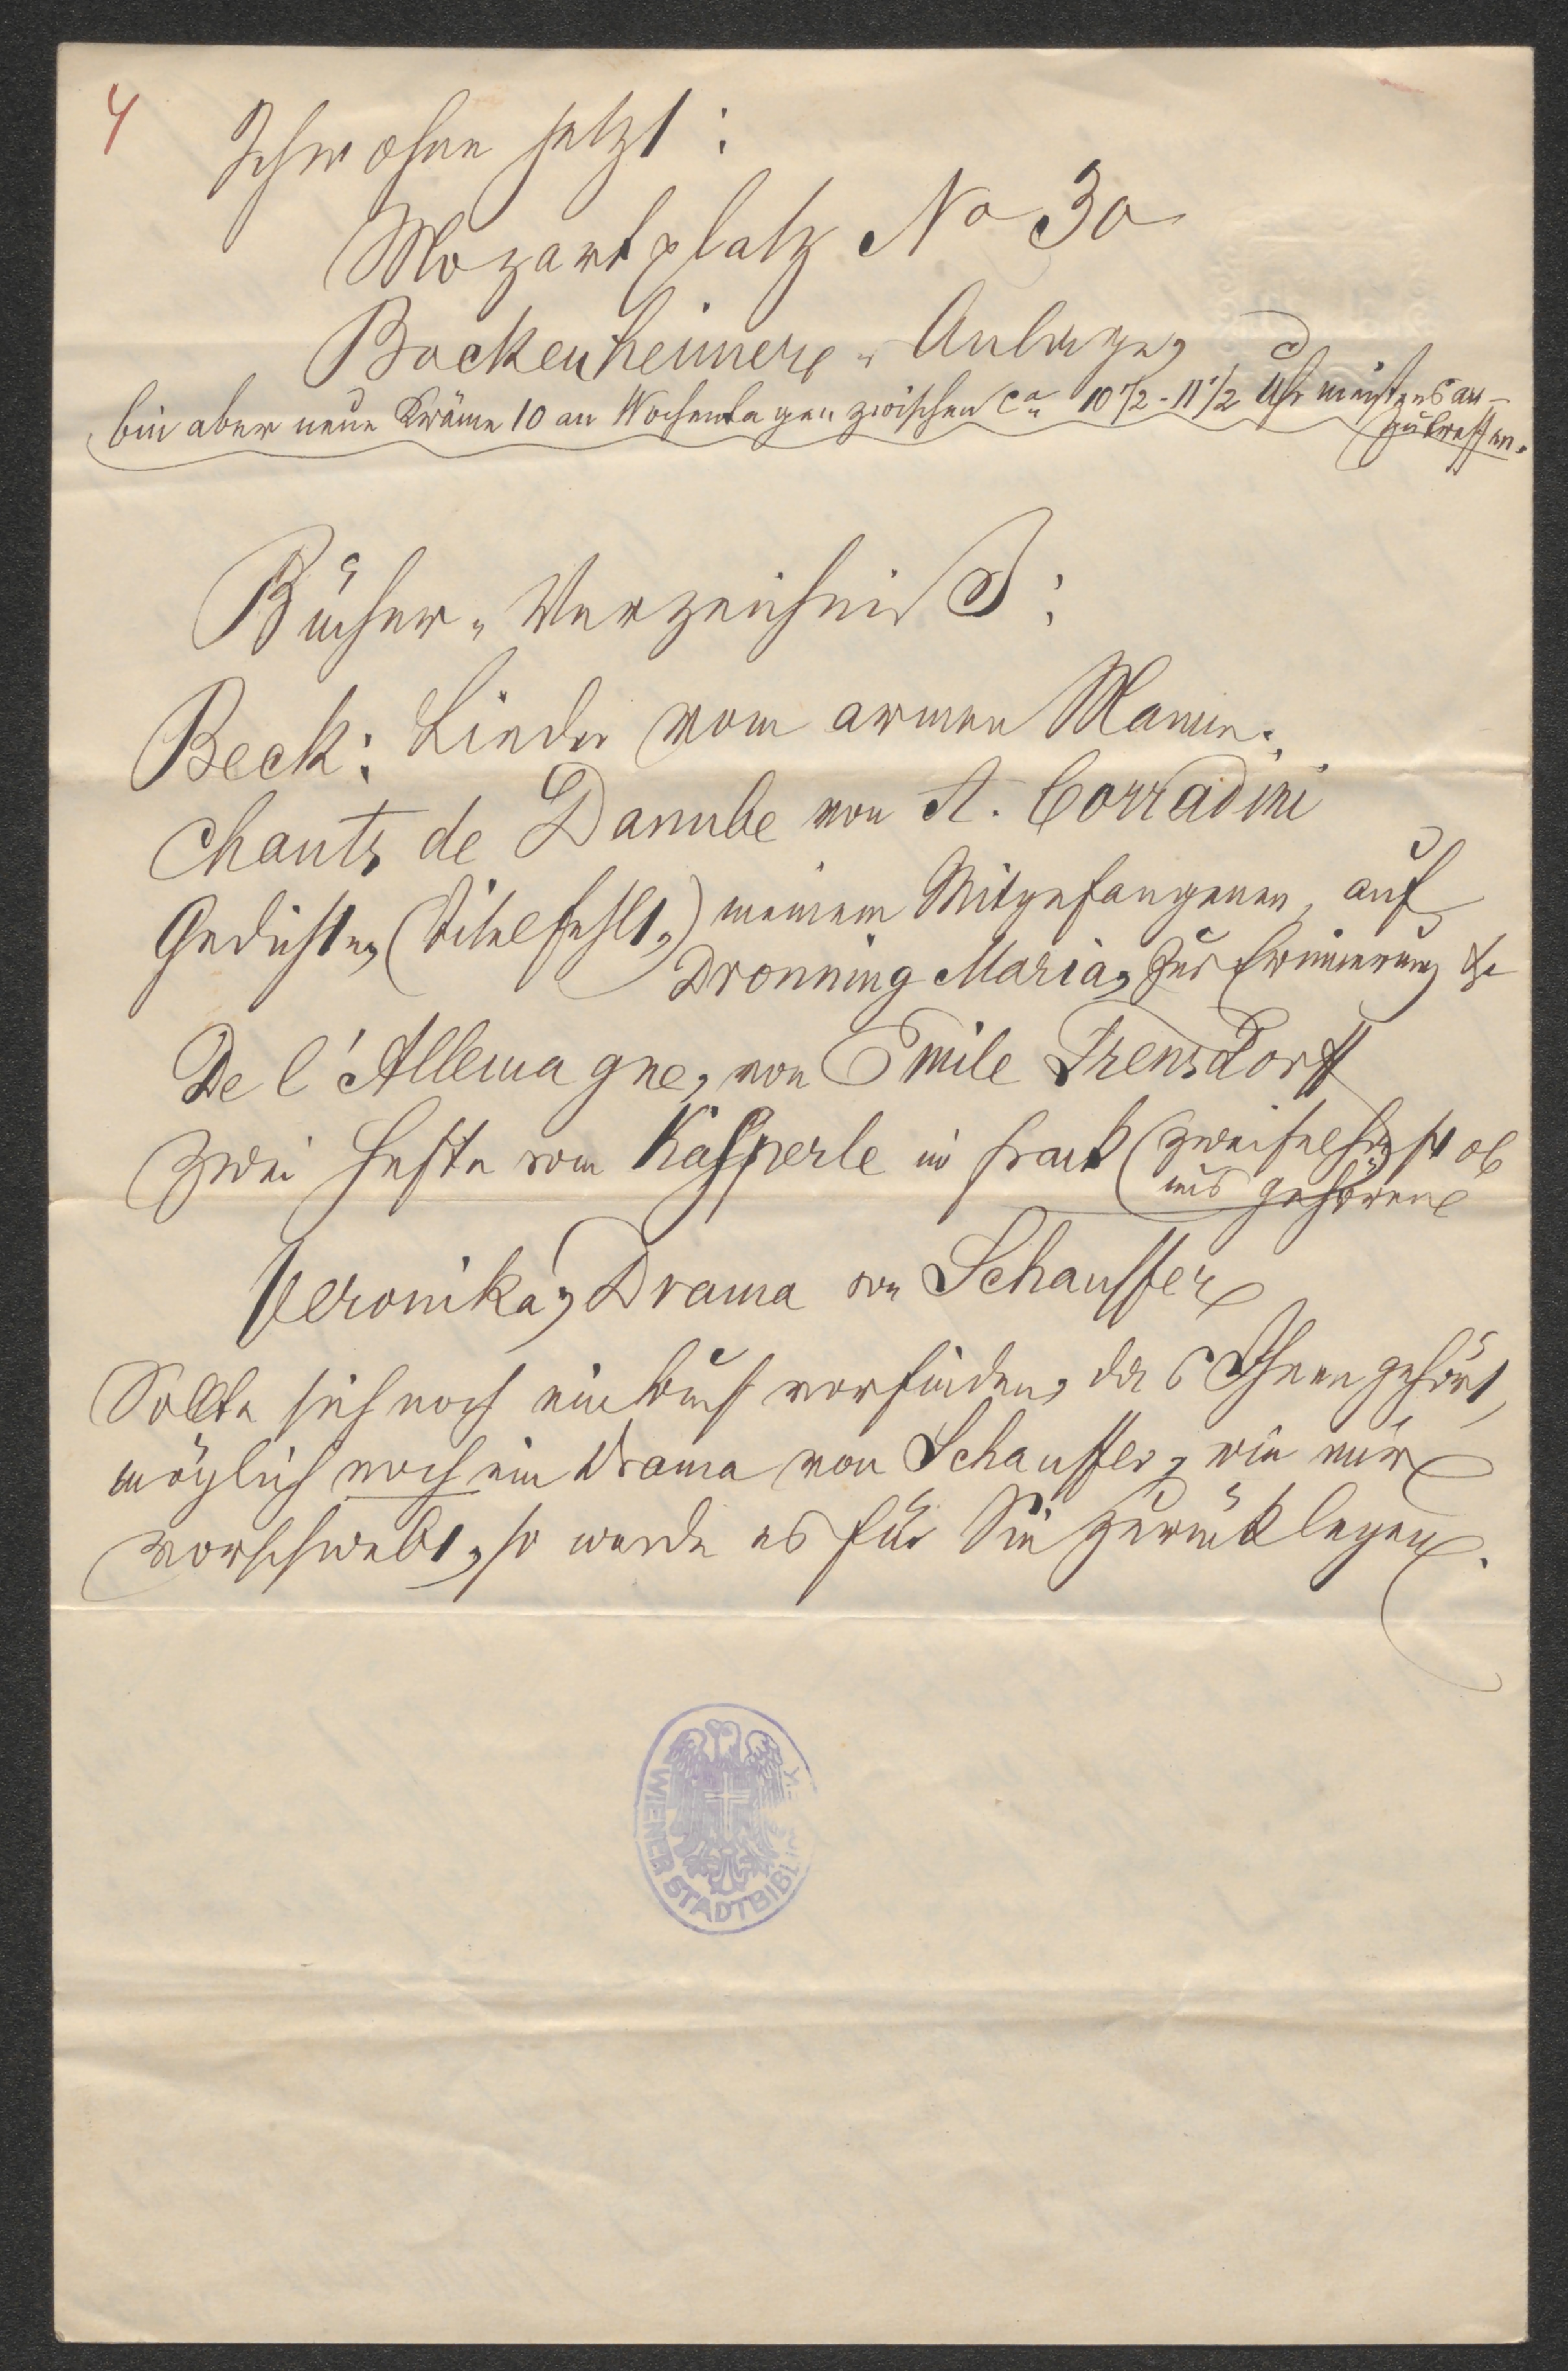 4
Ich wohne jetzt:
Mozartplatz No 30
Bockenheimer-Anlage,
bin aber neue Kräme 10 an Wochentagen zwischen ca 10 1/2 - 11 1/2 Uhr meistens an-
zutreffen.
Bücher-Verzeichniß:
Beck: Lieder vom armen Mann.
Chants de Danube von A. Corradini
Gedichte, (Titel fehlt,) meinem Mitgefangenen, auf
Dronning Maria, zur Erinnerung &c
De l'Allemagne, von Emile Trensdorff
Zwei Hefte vom Kasperle im Frack (zweifelhaft ob
uns gehören
Veronika, Drama von Schauffer
Sollte sich noch ein Buch vorfinden, das Ihnen gehört,
möglich noch ein Drama von Schauffer, wie mir
vorschwebt, so werde es für Sie zurücklegen.
WIENER STADTBIBLI